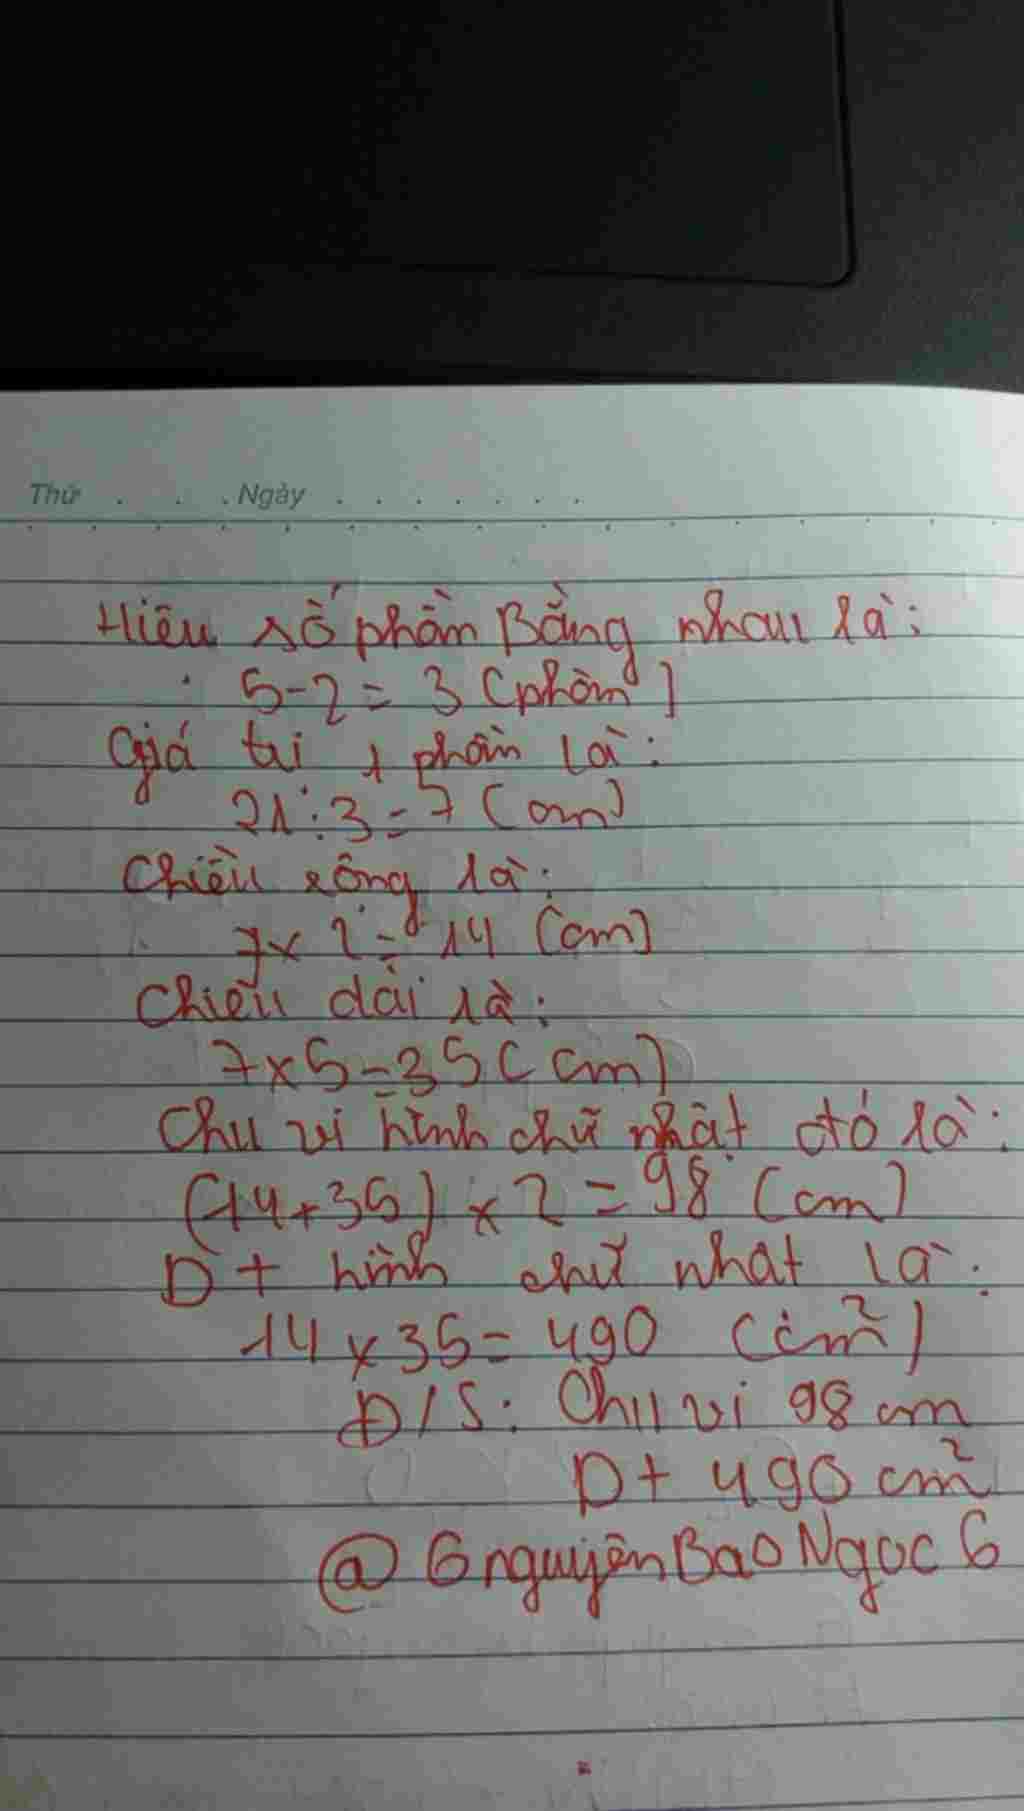 Thứ . . . Ngày . . . . . . .
Hiệu số phần Bằng nhau là:
5-2 = 3 (phần)
Giá trị 1 phần là:
21:3=7 (cm)
Chiều rộng là:
7x2=14 (cm)
Chiều dài là:
7x5=35 (cm)
Chu vi hình chữ nhật đó là:
(14+35) x 2 = 98 (cm)
D t hình chữ nhật là:
14 x 35 = 490 (cm²)
Đ/S: Chu vi 98 cm
D t 490 cm²
@ 6nguyênBaoNgọc6